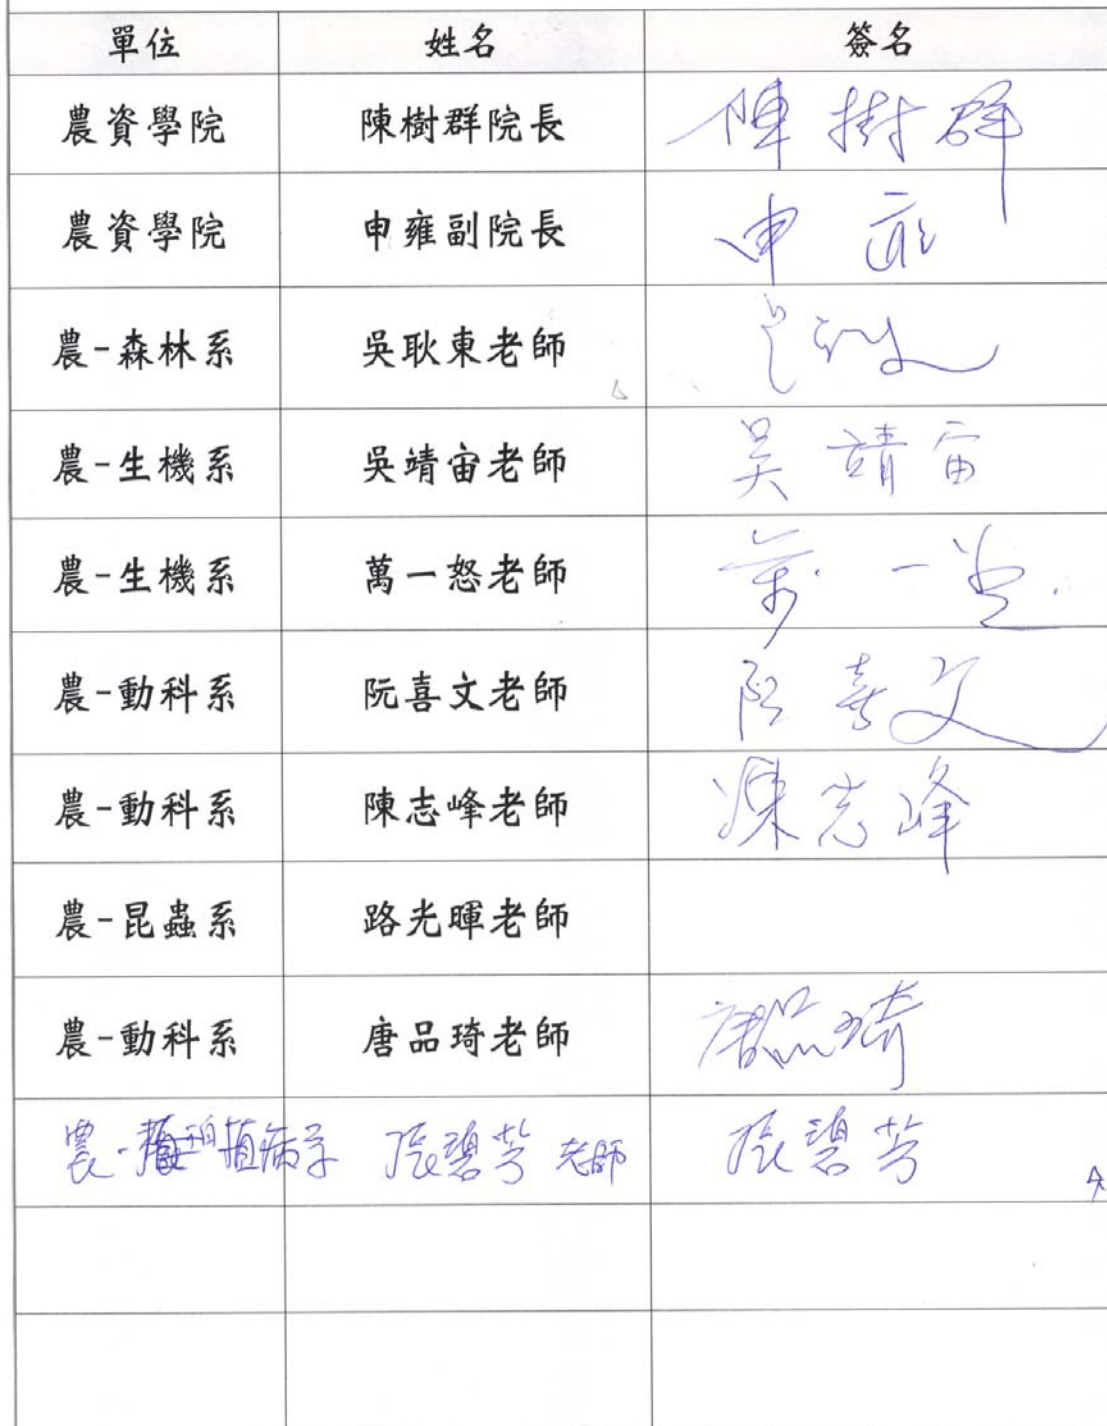 單位 姓名 簽名
農資學院 陳樹群院長 陳樹群
農資學院 申雍副院長 申雍
農-森林系 吳耿東老師
農-生機系 吳靖宙老師 吳靖宙
農-生機系 萬一怒老師 萬一怒
農-動科系 阮喜文老師 阮喜文
農-動科系 陳志峰老師 陳志峰
農-昆蟲系 路光暉老師
農-動科系 唐品琦老師 唐品琦
農-植病系 張碧芳老師 張碧芳